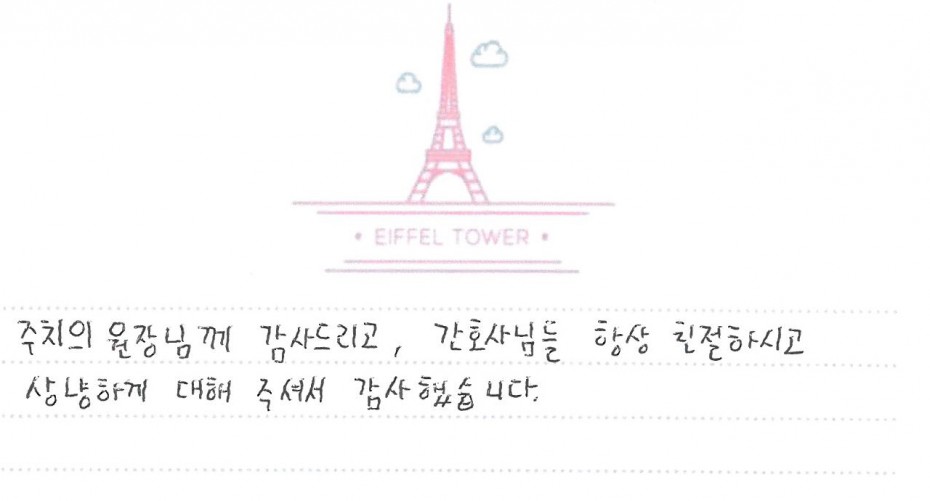 • EIFFEL TOWER •
주치의 원장님께 감사드리고, 간호사님들 항상 친절하시고
상냥하게 대해 주셔서 감사했습니다.